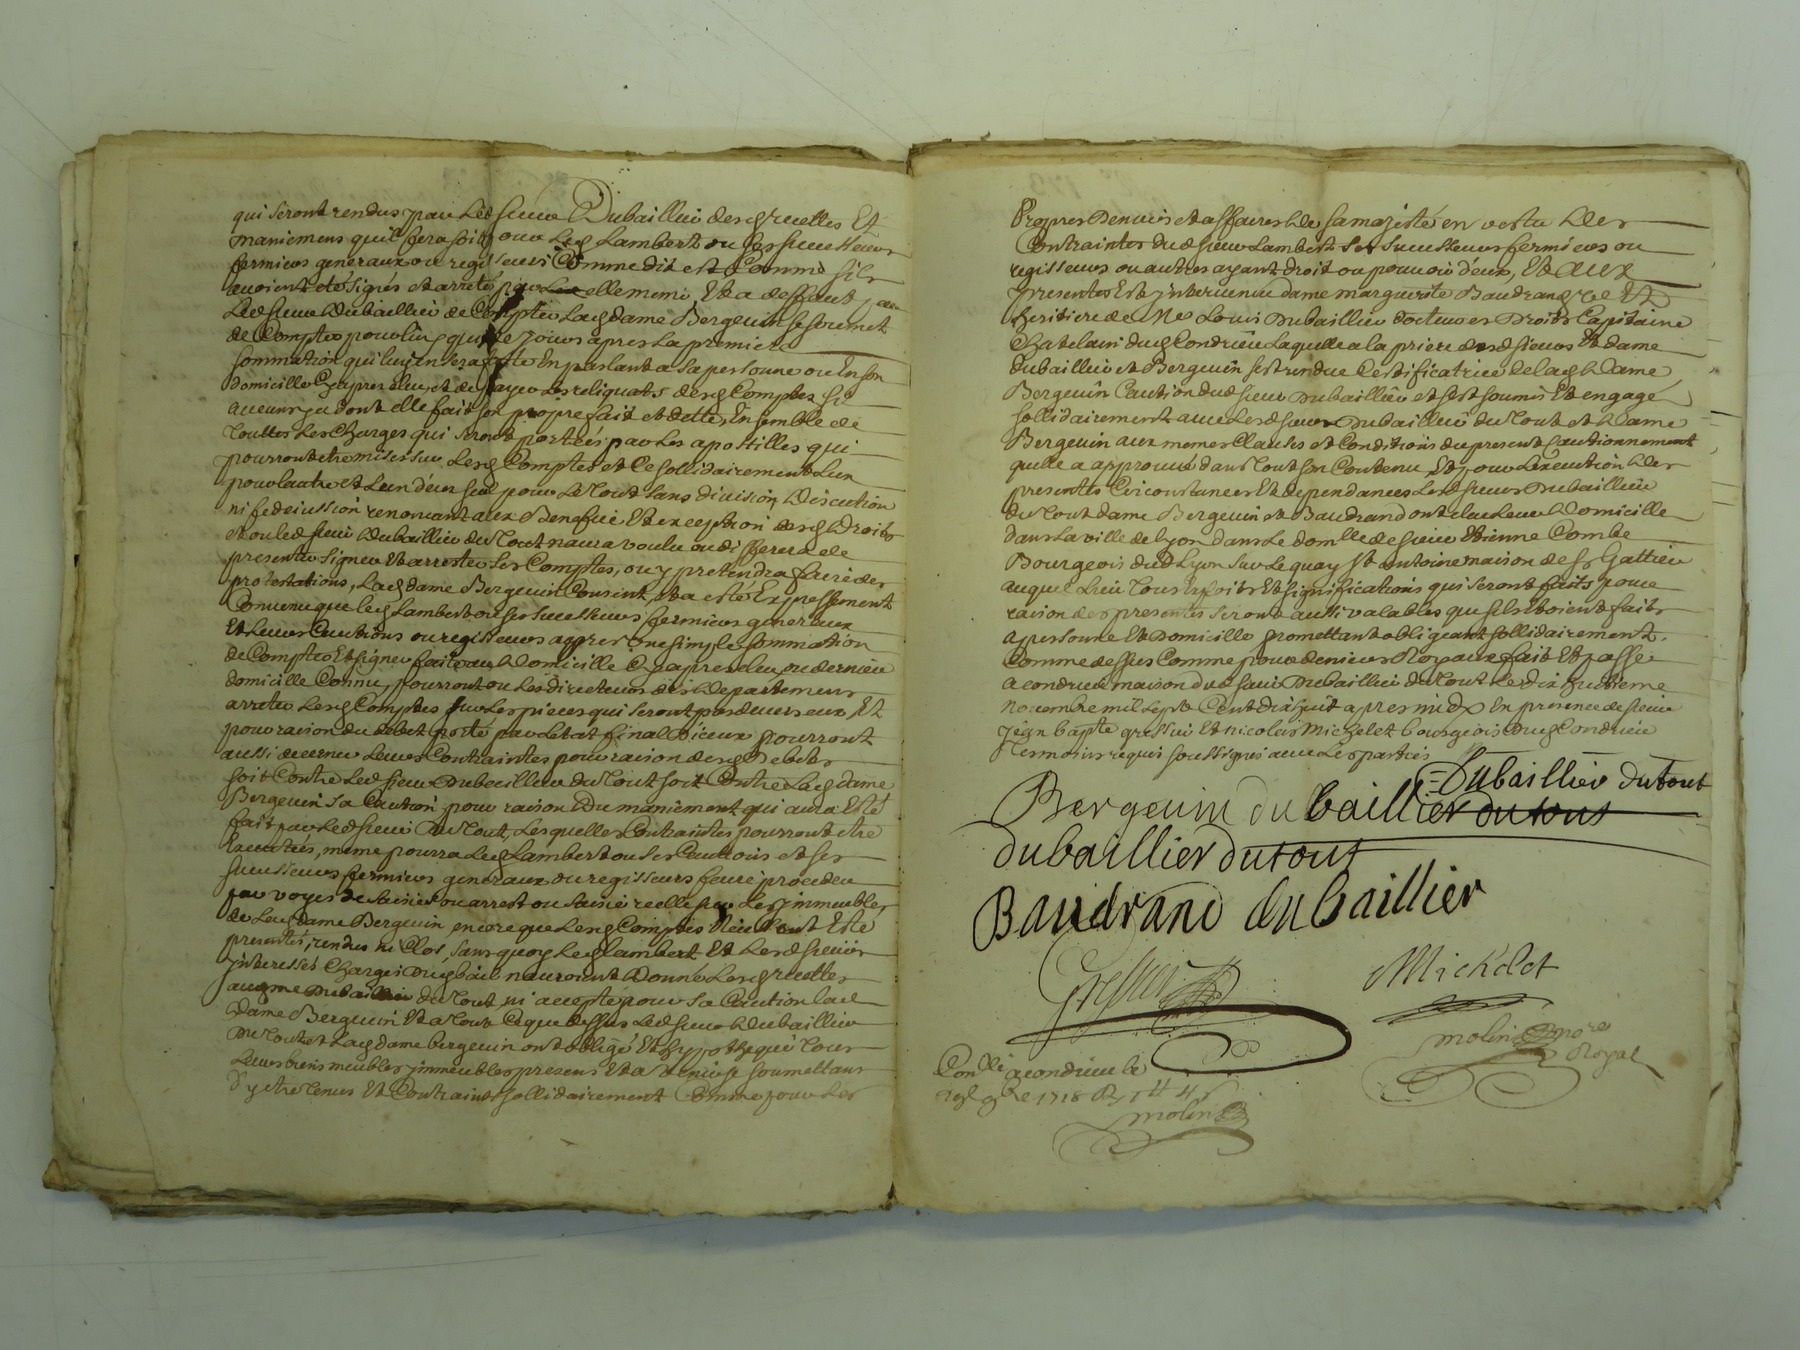 qui seront rendus par led sieur Dubaillier desq recettes Et
maniemens quil fera soit pour Leq Lambert ou ses successeurs
fermiers generaux ou regisseurs Comme dit est Comme sils
avoient eté signés et arretés par elle meme, Et a deffaut par
Led sieur Dubaillier de Compter Laq dame Bergeuin se soumet
de Compter pour luy quinze jours apres La premiere
sommation qui luy en sera faite En parlant a sa personne ou En son
domicille Cy apres elu, et de payer Les reliquats desq Comptes si
aucuns y a dont elle fait son propre fait et dette, Ensemble de
Touttes Les Charges qui seront portées par Les apostilles qui
pourront etre mises sur Lesq Comptes et Ce sollidairement Lun
pour lautre et Lun deux seul pour Le Tout sans division, discution
ni fedejussion renoncant aux Benefice Et exception desq Droits
et ou led sieur Dubaillier du Tout naura voulu ou differera de
presenter signer Et arrester ses Comptes, ou y pretendra faire des
protestations, Laq dame Bergeuin Consent, Et a esté Expressement
Convenu que leq Lambert ou ses successeurs fermiers generaux
Et Leurs Cautions ou regisseurs appres une simple sommation
de Compter Et signer faite au domicille Cy apres elu ou dernier
domicille Connu, pourront ou Les directeurs des departemens
arreter Lesq Comptes sur Les pieces qui seront pardevers eux Et
pour raison du debet porté par Letat final diceux pourront
aussi decerner Leurs Contraintes pour raison desq Debets
soit Contre Led sieur Dubaillier du Tout soit Contre Laq dame
Bergeuin sa Caution pour raison du maniement qui aura Eté
fait par Led sieur Du Tout, Lesquelles Contraintes pourront etre
Executées, meme pourra Leq Lambert ou ses Cautions et ses
successeurs fermiers generaux ou regisseurs faire proceder
par voyes de saisies ou arrest ou saisie reelle sur Les immeubles
de Lad dame Bergeuin encore que Lesq Comptes Nayent Eté
presentés, rendus ni Clos, sans quoy Leq Lambert Et Lesd sieurs
Interessés Chargés Duq bail nauroient Donné Lesq recettes
aud sieur Dubaillier du Tout, ni accepté pour sa Caution lad
Dame Bergeuin Et a Tout Ce que dessus Led sieur Dubaillier
Du Tout et Laq dame bergeuin ont obligé Et hypothequé Tous
Leurs biens meubles immeubles presens Et a venir se soumettans
d'y etre Tenus Et Contraints sollidairement Comme pour Les
Propres Deniers et affaires de sa majesté en vertu des
Contraintes dud sieur Lambert Ses successeurs fermiers ou
regisseurs ou autres ayant droit ou pouvoir d'eux, Et aux
presentes Est intervenue dame marguerite Baudrand Et
heritiere de Me Louis Dubaillier docteur es Droits Capitaine
Chatelain duq Condrieu Laquelle a la priere desd sieurs Et dame
Dubaillier et Bergeuin sest rendue Certificatrice de laq Dame
Bergeuin Caution dud sieur Dubaillier et sest soumis Et engagé
sollidairement avec Led sieur Dubaillier du Tout et Dame
Bergeuin aux memes Clauses et Conditions du present Cautionnement
quelle a approuvé dans Tout son Contenu, Et pour Lexecution des
presentes Circonstances Et dependances Lesd sieurs Dubaillier
du Tout dame Bergeuin et Baudrand ont elu Leur Domicille
dans La ville de Lyon dans Le domlle de sieur Etienne Combe
Bourgeois dud Lyon sur Le quay St antoine maison de sr Gattier
auquel Lieu Tous exploits Et significations qui seront faits pour
raison des presentes seront aussi valables que sils etoient faits
a personne Et Domicille, promettant obligeant sollidairement
Comme dessus Comme pour deniers Royaux fait Et passé
a condrieu maison dud sieur Dubaillier du Tout Le dix huitieme
novembre mil sept Cent dix huit apres midy En presence de sieur
Jean bapte gressier Et nicolas Michelet bourgeois duq Condrieu
Temoins requis soussignés avec Les parties
=Dubaillier dutout
Bergeuin dubaillier dutout
dubaillier dutout
Baudrand dubaillier
Michelet
molin nore
Royal
Conllé a condrieu le
9bre 1718
molin